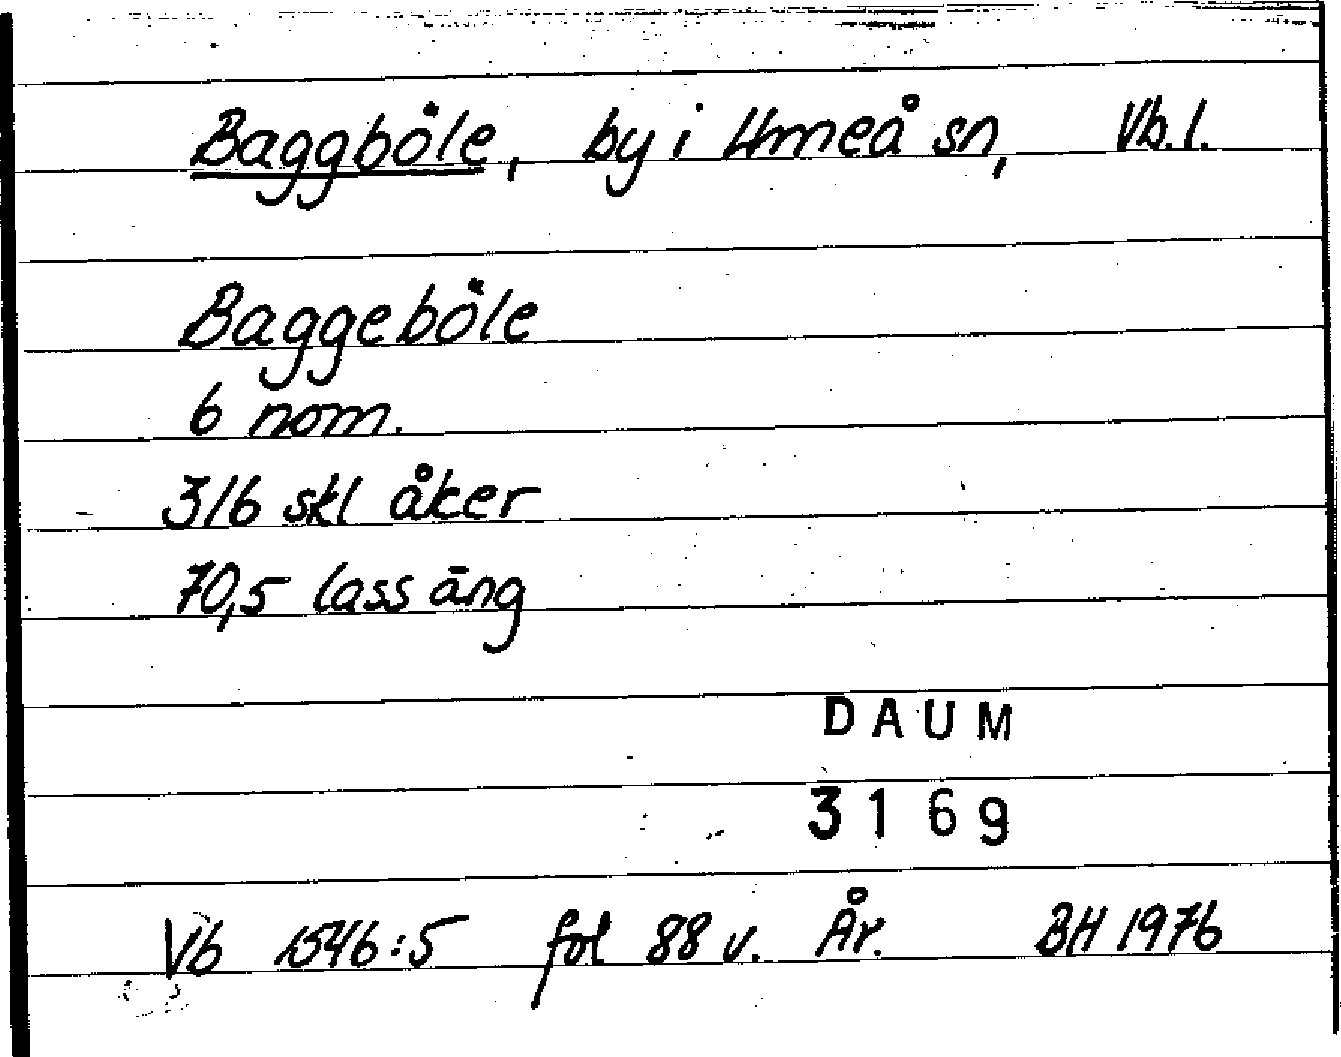 Baggböle, by i Umeå sn, Vb.l.
Baggeböle
6 nom.
316 skl åker
70,5 lass äng
DAUM
3169
Vb 1546:5 fol 88 v. År. BH 1976